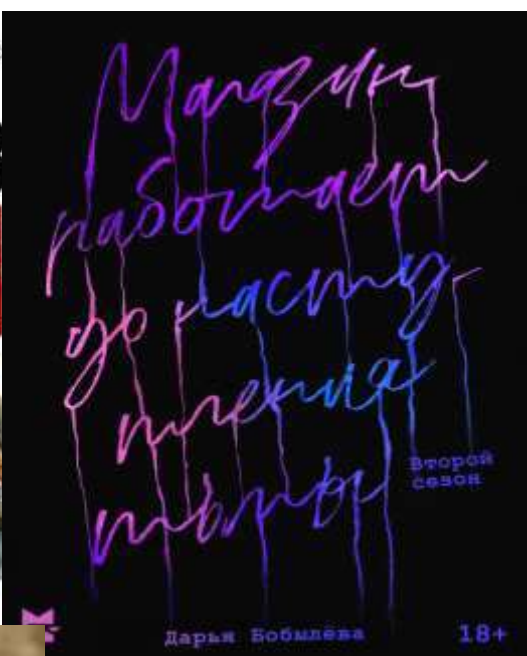 Магазин
работает
до насту-
пления
тьмы
Второй
сезон
Дарья Бобылёва
18+